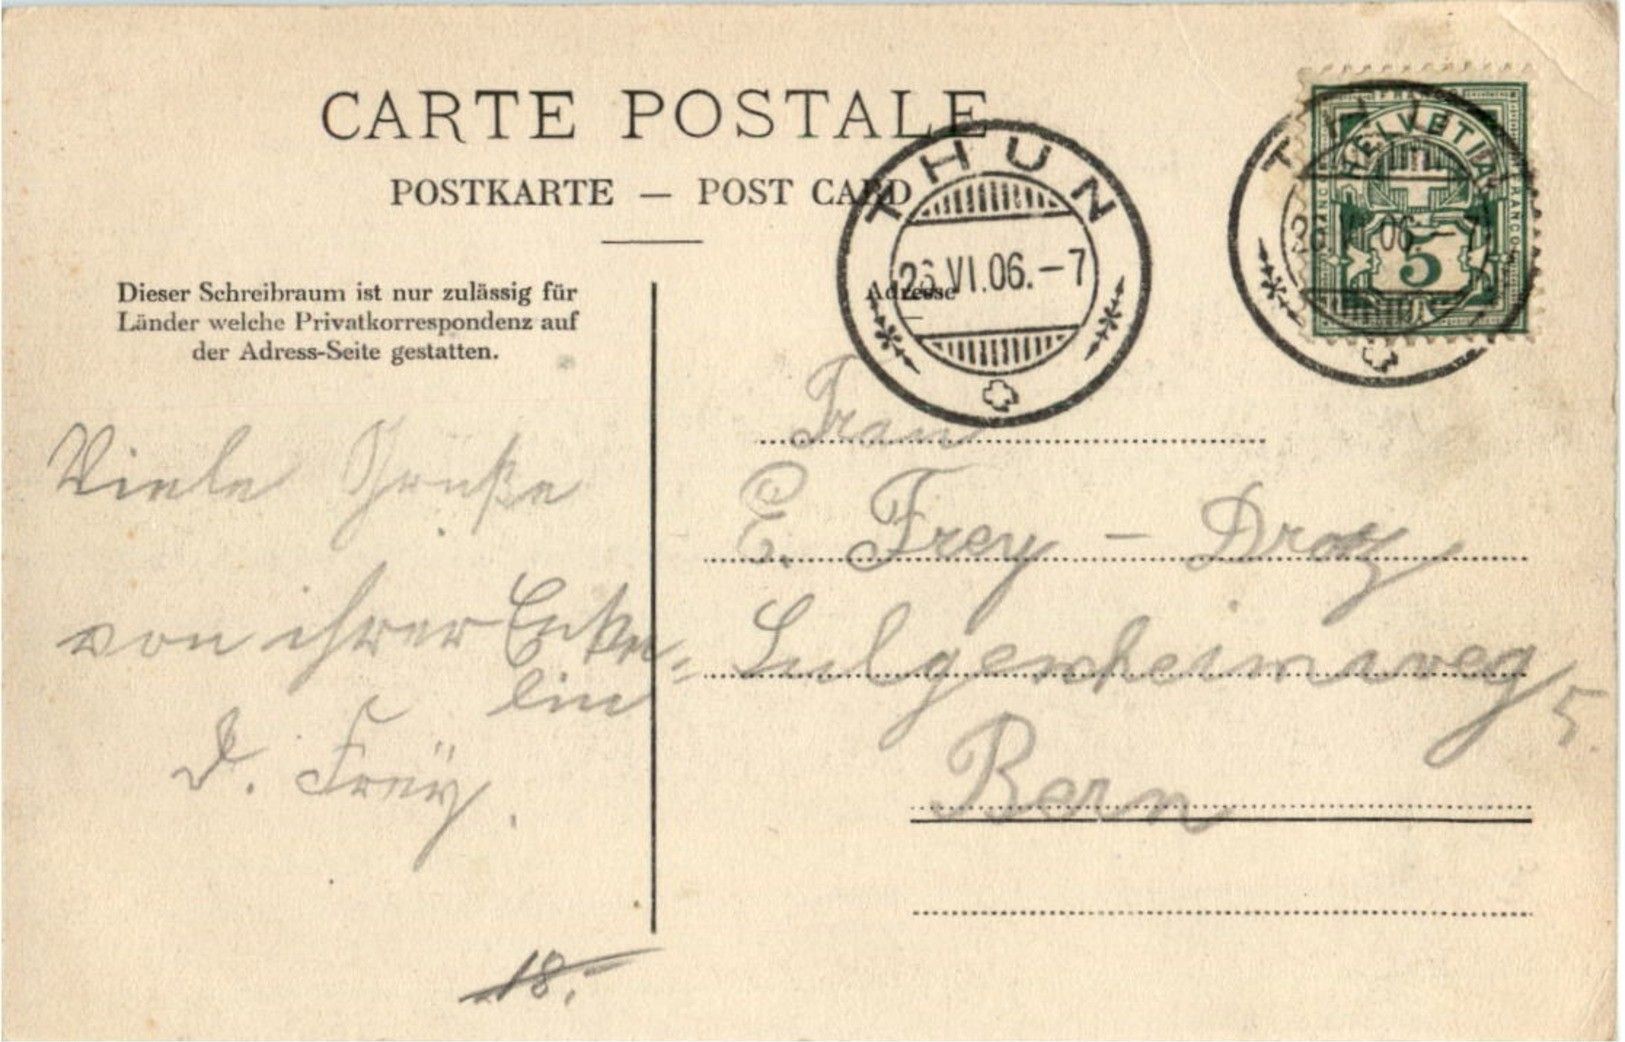 CARTE POSTALE
POSTKARTE — POST CARD
Dieser Schreibraum ist nur zulässig für
Länder welche Privatkorrespondenz auf
der Adress-Seite gestatten.
Adresse
THUN
26.VI.06.-7
HELVETIA
FRANCO
5
Viele Grüße
von ihrer Enke-
lin
D. Frey.
Frau
E. Frey - Droz,
Sulgenheimweg 5.
Bern
18.-